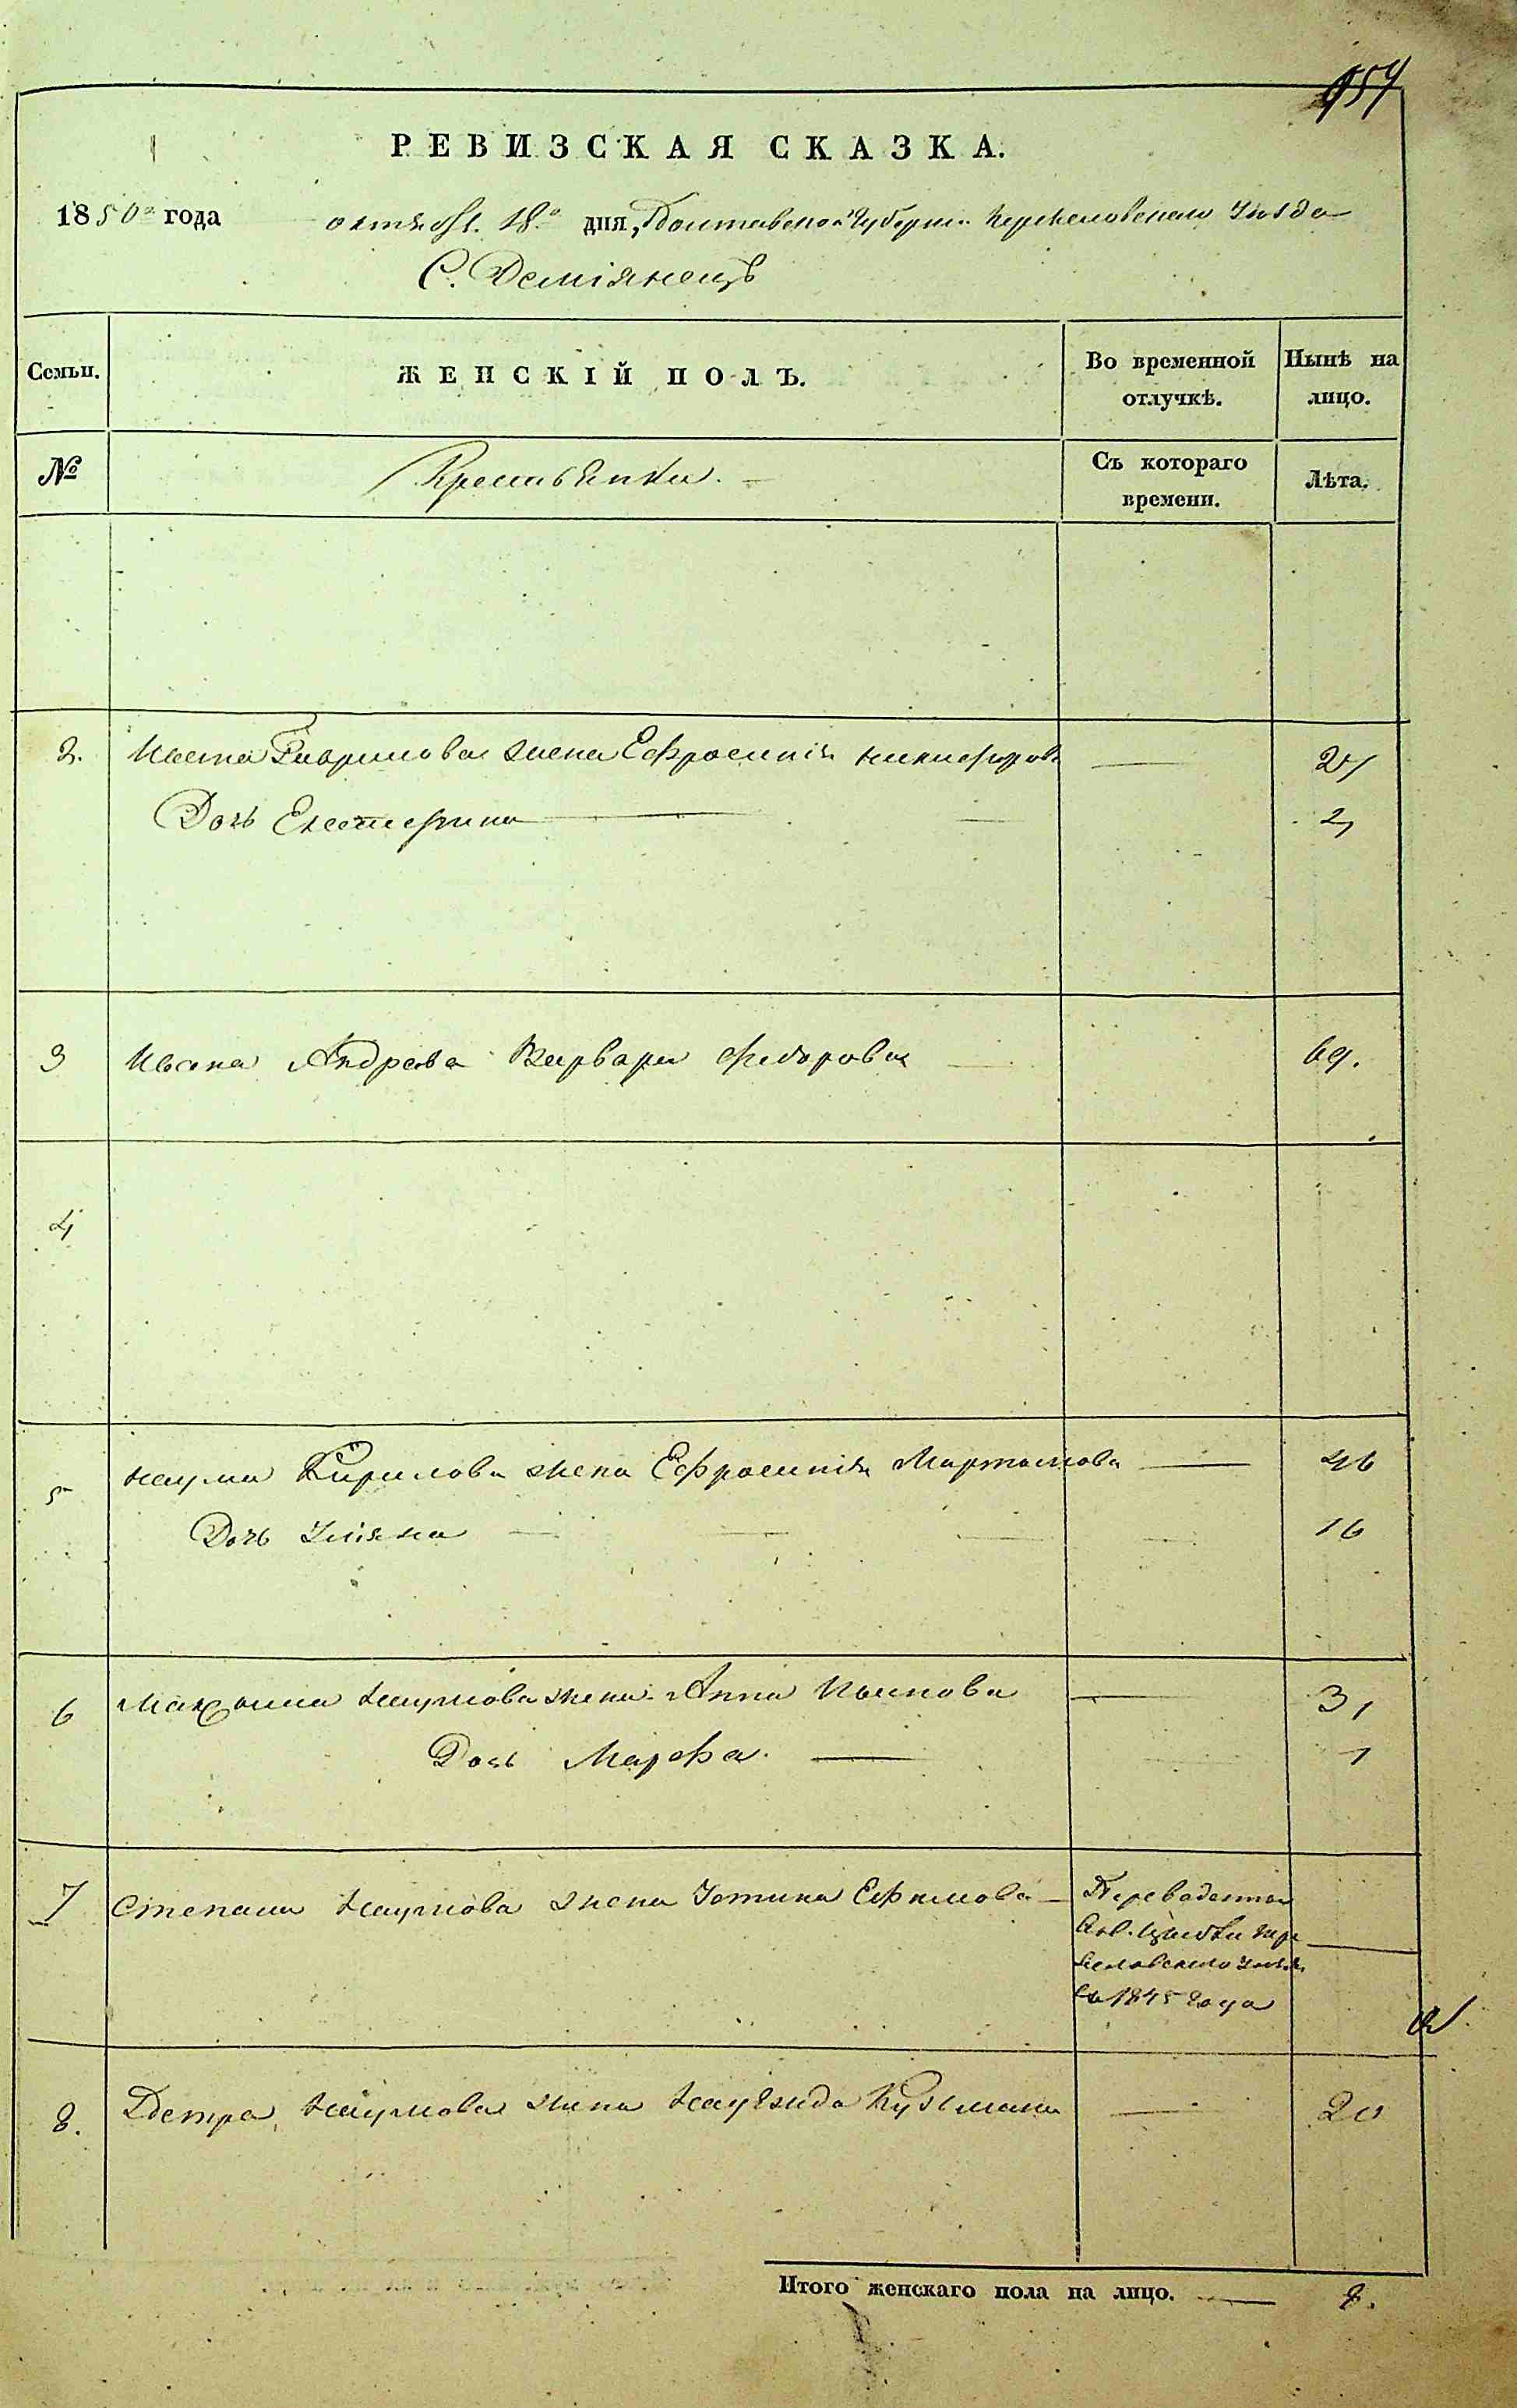 РЕВИЗСКАЯ СКАЗКА.
1850го года октября 18го дня, Полтавской Губернии Переяславскаго Уѣзда
С. Демьянецъ
Семьи.
ЖЕНСКІЙ ПОЛЪ.
Во временной отлучкѣ.
Нынѣ на лицо.
№
Крестьянки.
Съ котораго времени.
Лѣта.
2. Гаврилова жена Ефросинія Никифоров
Дочь Екатерина 2
3 Ивана Андреева Варвара Федорова 69.
4
5 Наума Кирилова жена Ефросинія Мартынова 46
Дочь Уліяна 16
6 Максима Наумова жена Анна Иванова 31
Дочь Марфа. 1
7 Степана Наумова жена Устина Ефимова
Переведенная
въ 1845 года
8. Петра Наумова жена Надежда Кузмина 20
Итого женскаго пола на лицо. 8.